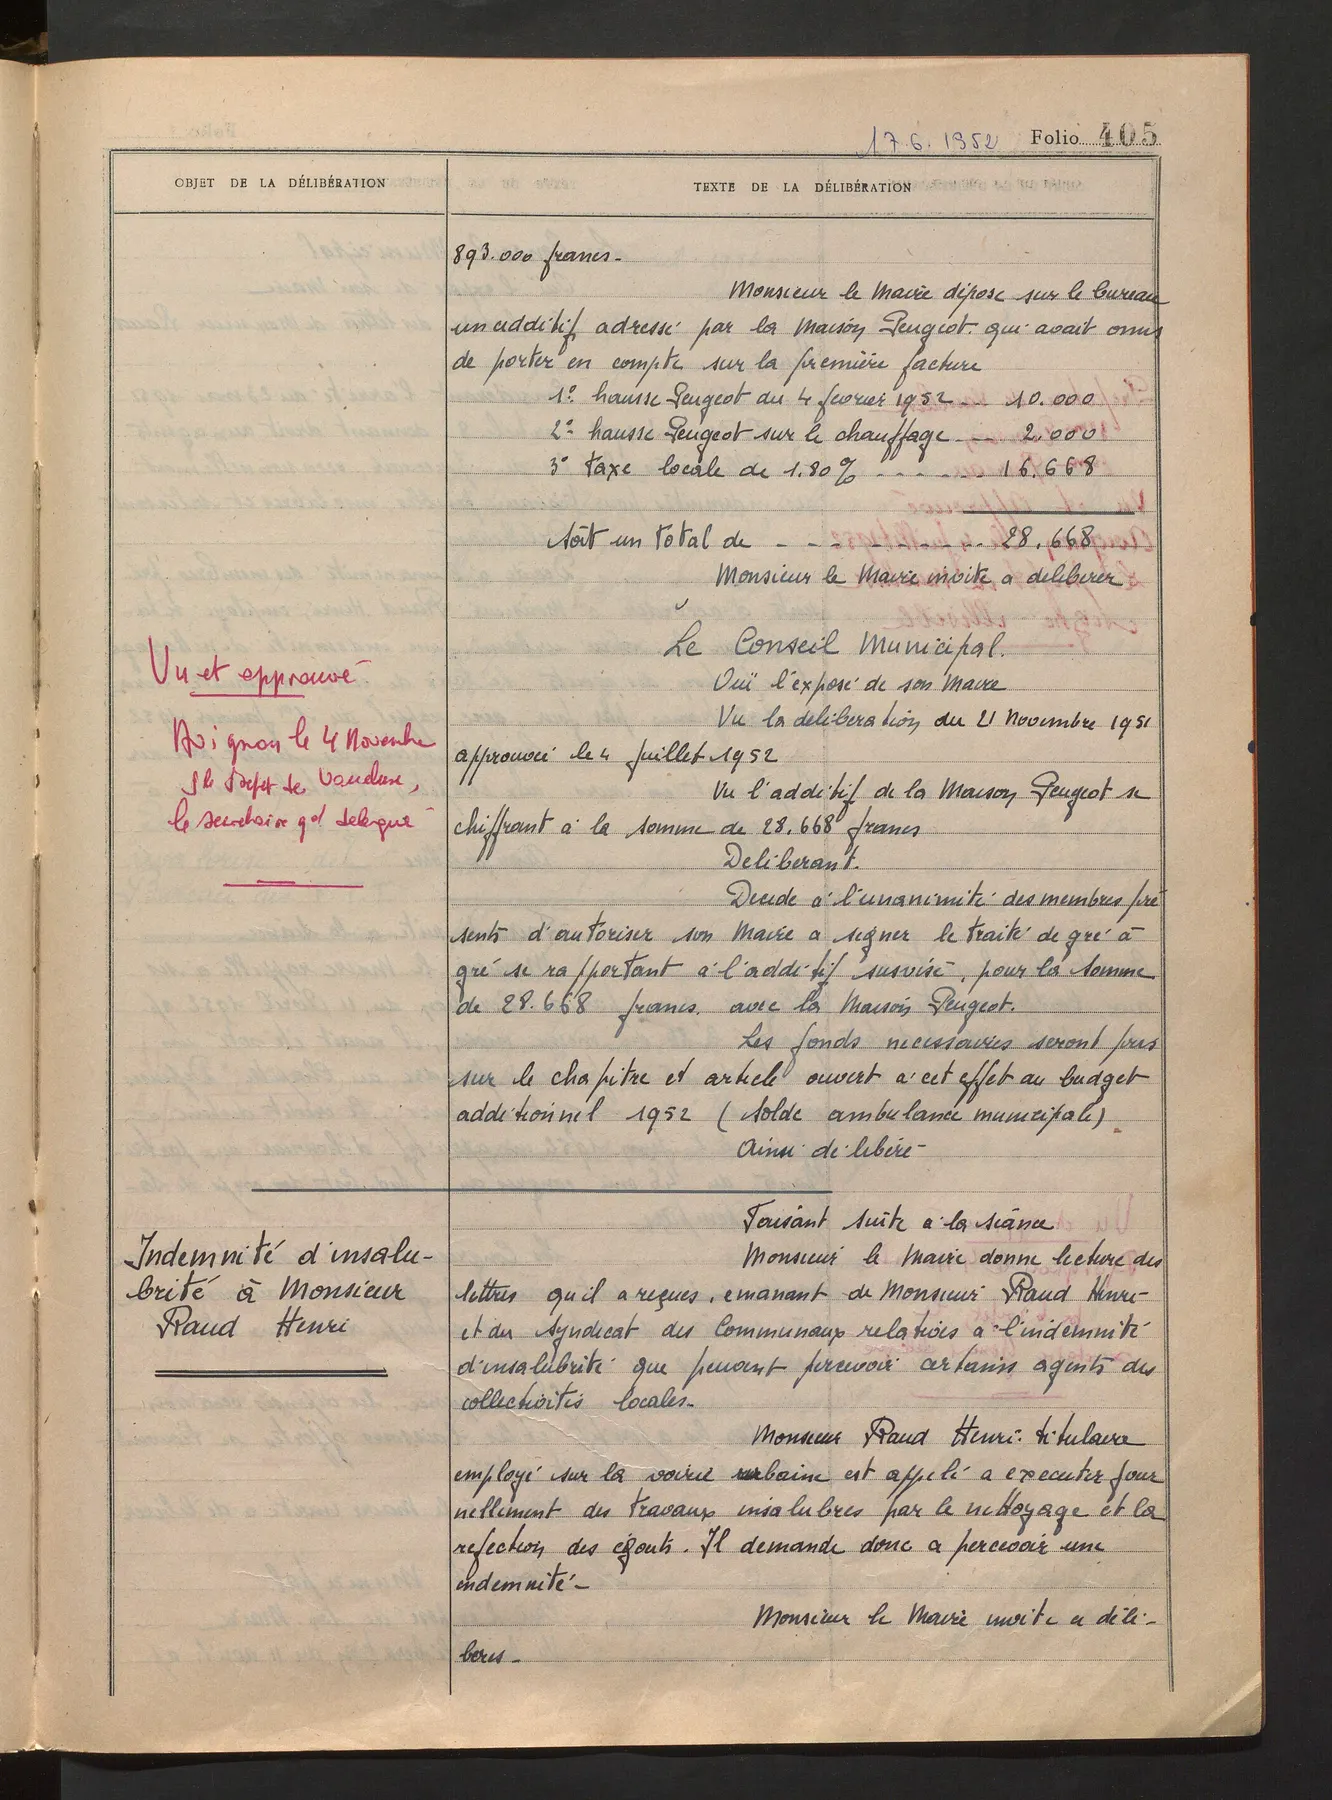 17.6.1952 Folio 405
OBJET DE LA DÉLIBÉRATION
TEXTE DE LA DÉLIBÉRATION
893.000 francs.
Monsieur le Maire dépose sur le bureau
un additif adressé par la Maison Peugeot. qui avait omis
de porter en compte sur la première facture
1° hausse Peugeot du 4 fevrier 1952 - - 10.000
2° hausse Peugeot sur le chauffage - - 2.000
3° taxe locale de 1.80% - - - - - 16.668
Soit un total de - - - - - - - - 28.668
Monsieur le Maire invite a deliberer
Le Conseil Municipal.
Ouï l'exposé de son Maire
Vu la deliberation du 21 Novembre 1951
approuvée le 4 Juillet 1952
Vu l'additif de la Maison Peugeot se
chiffrant à la somme de 28.668 francs
Deliberant.
Decide à l'unanimité des membres pré
sents d'autoriser son Maire a signer le traité de gré à
gré se rapportant à l'additif susvisé, pour la somme
de 28.668 francs. avec la Maison Peugeot.
Les fonds necessaires seront pris
sur le chapitre et article ouvert à cet effet au budget
additionnel 1952 (Solde ambulance municipale)
Ainsi délibéré -
Vu et approuvé
Avignon le 4 Novembre
le Prefet de Vaucluse,
le secrétaire gal délégué
Indemnité d'insalu-
brité à Monsieur
Raud Henri
Faisant suite à la séance
Monsieur le Maire donne lecture des
lettres qu'il a reçues, emanant de Monsieur Raud Henri
et du Syndicat des Communaux relatives à l'indemnité
d'insalubrité que peuvent percevoir certains agents des
collectivités locales.
Monsieur Raud Henri. titulaire
employé sur la voirie urbaine est appelé a executer jour
nellement des travaux insalubres par le nettoyage et la
refection des égouts. Il demande donc a percevoir une
indemnité -
Monsieur le Maire invite a déli-
berer -